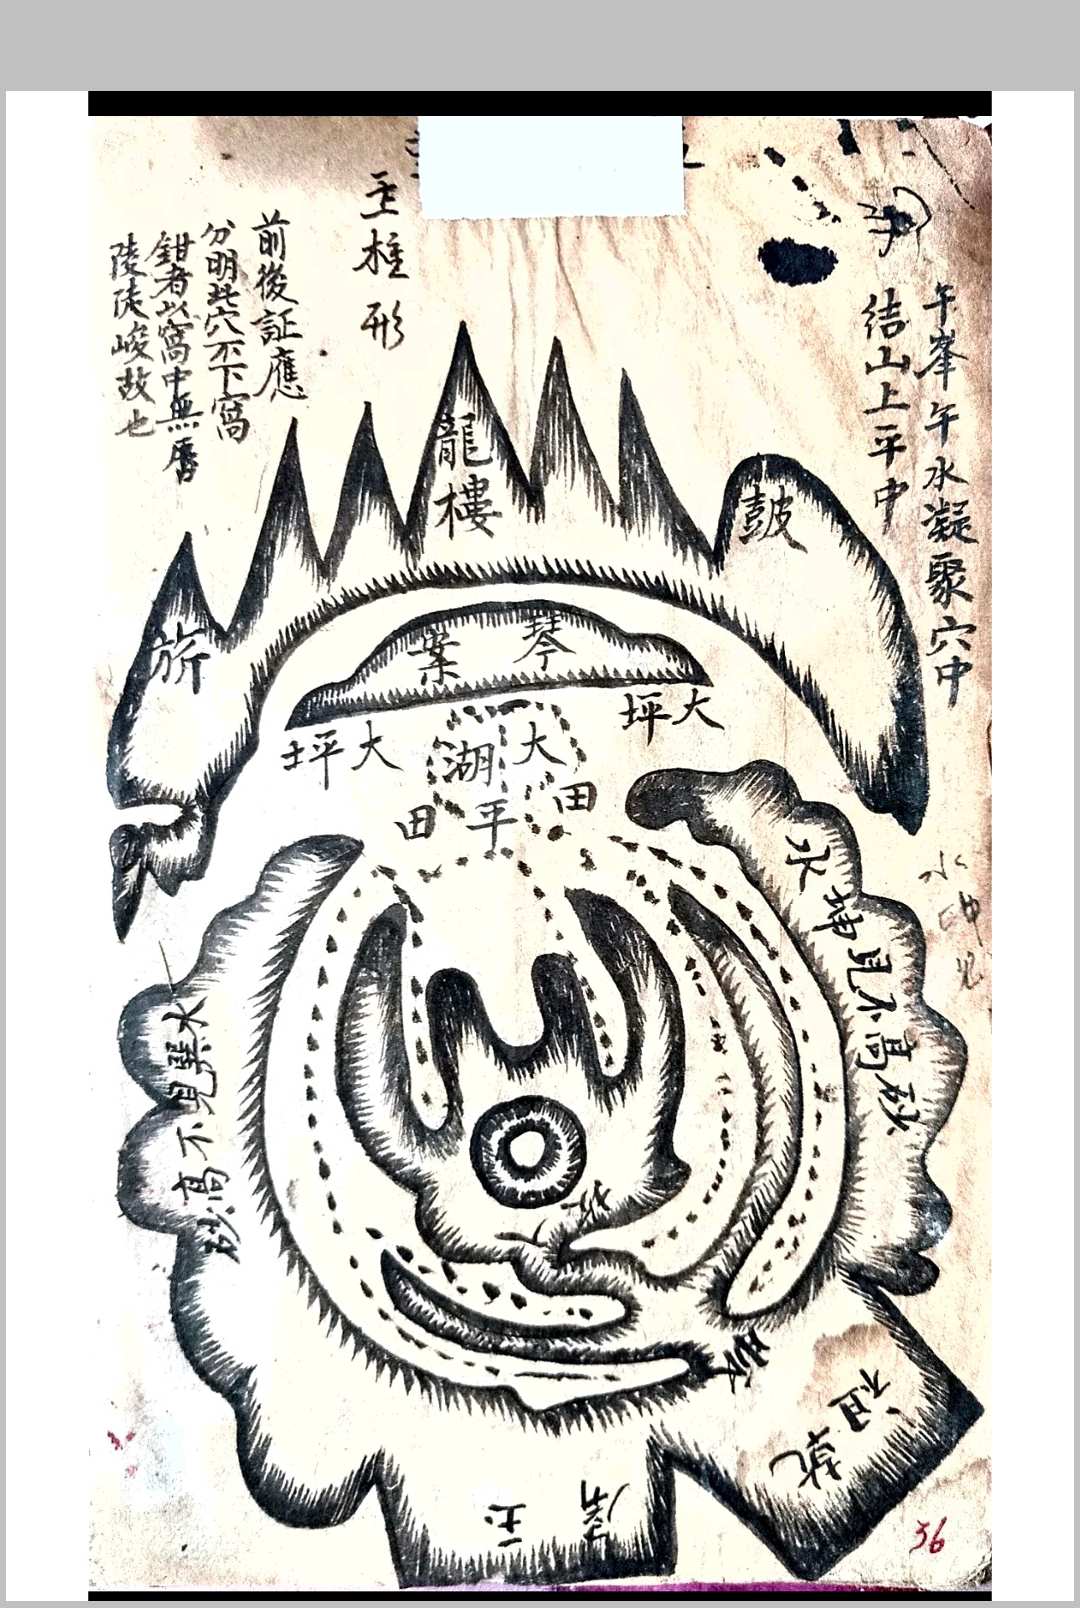 午峯午水凝聚穴中
结山上平中
玉柱形
前後証應
分明此穴不下窩
鉗者以窩中無唇
陵徒峻故也
龍樓
鼓
旂
琴案
大坪
大坪
大湖
田
平
田
水
見不高砂
水巽見不高砂
玉屏
乾祖
36